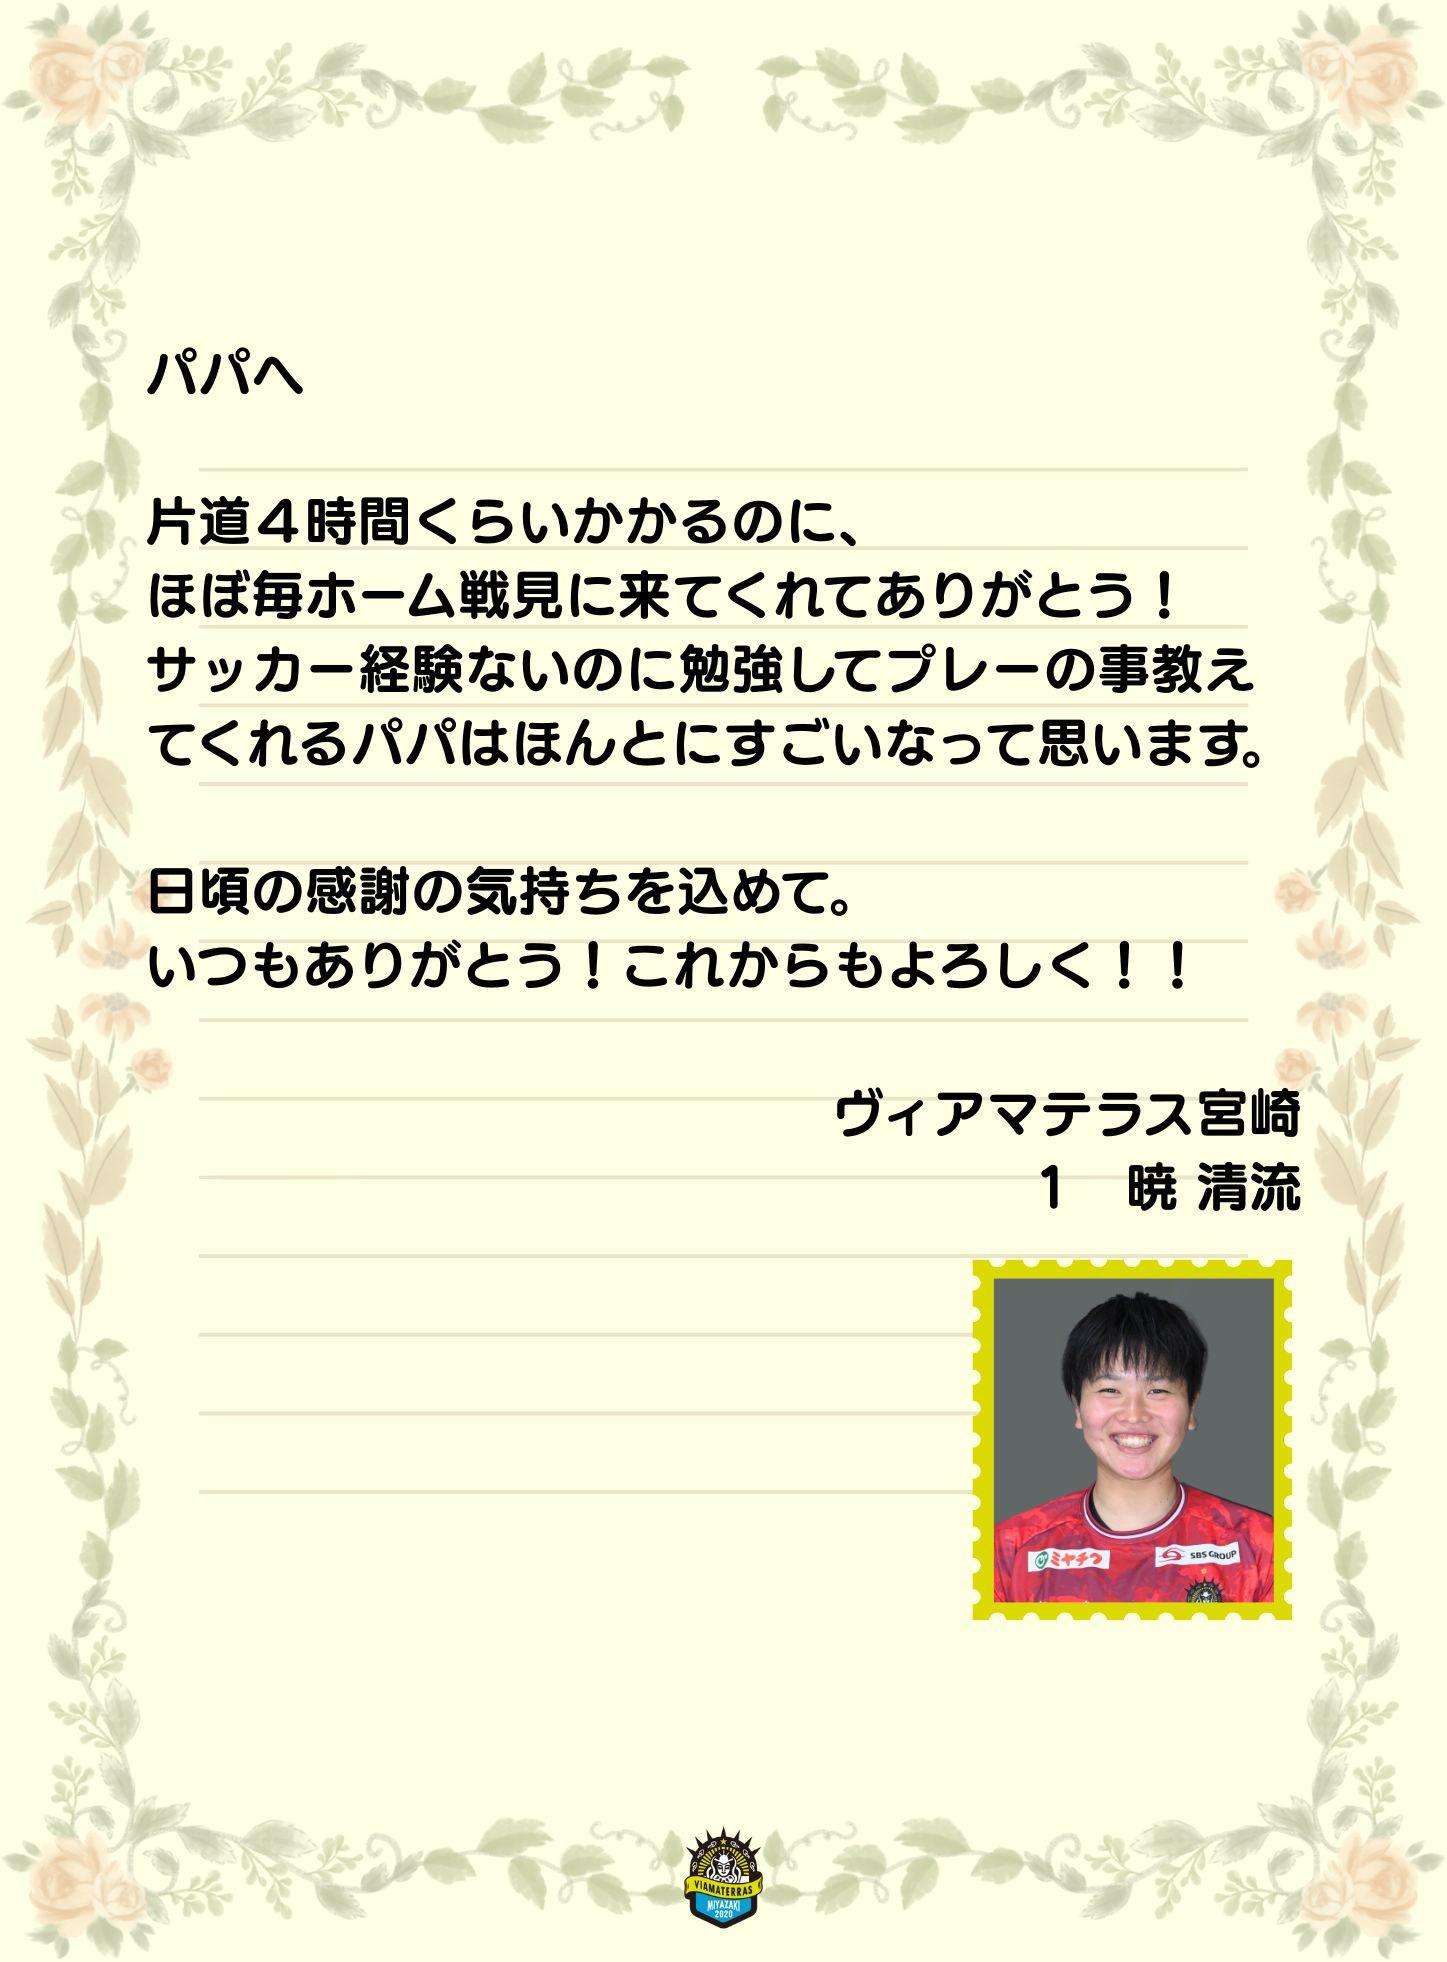 パパへ
片道４時間くらいかかるのに、
ほぼ毎ホーム戦見に来てくれてありがとう！
サッカー経験ないのに勉強してプレーの事教え
てくれるパパはほんとにすごいなって思います。
日頃の感謝の気持ちを込めて。
いつもありがとう！これからもよろしく！！
ヴィアマテラス宮崎
1　暁 清流
ミヤチク
SBS GROUP
VIAMATERRAS
MIYAZAKI
2020